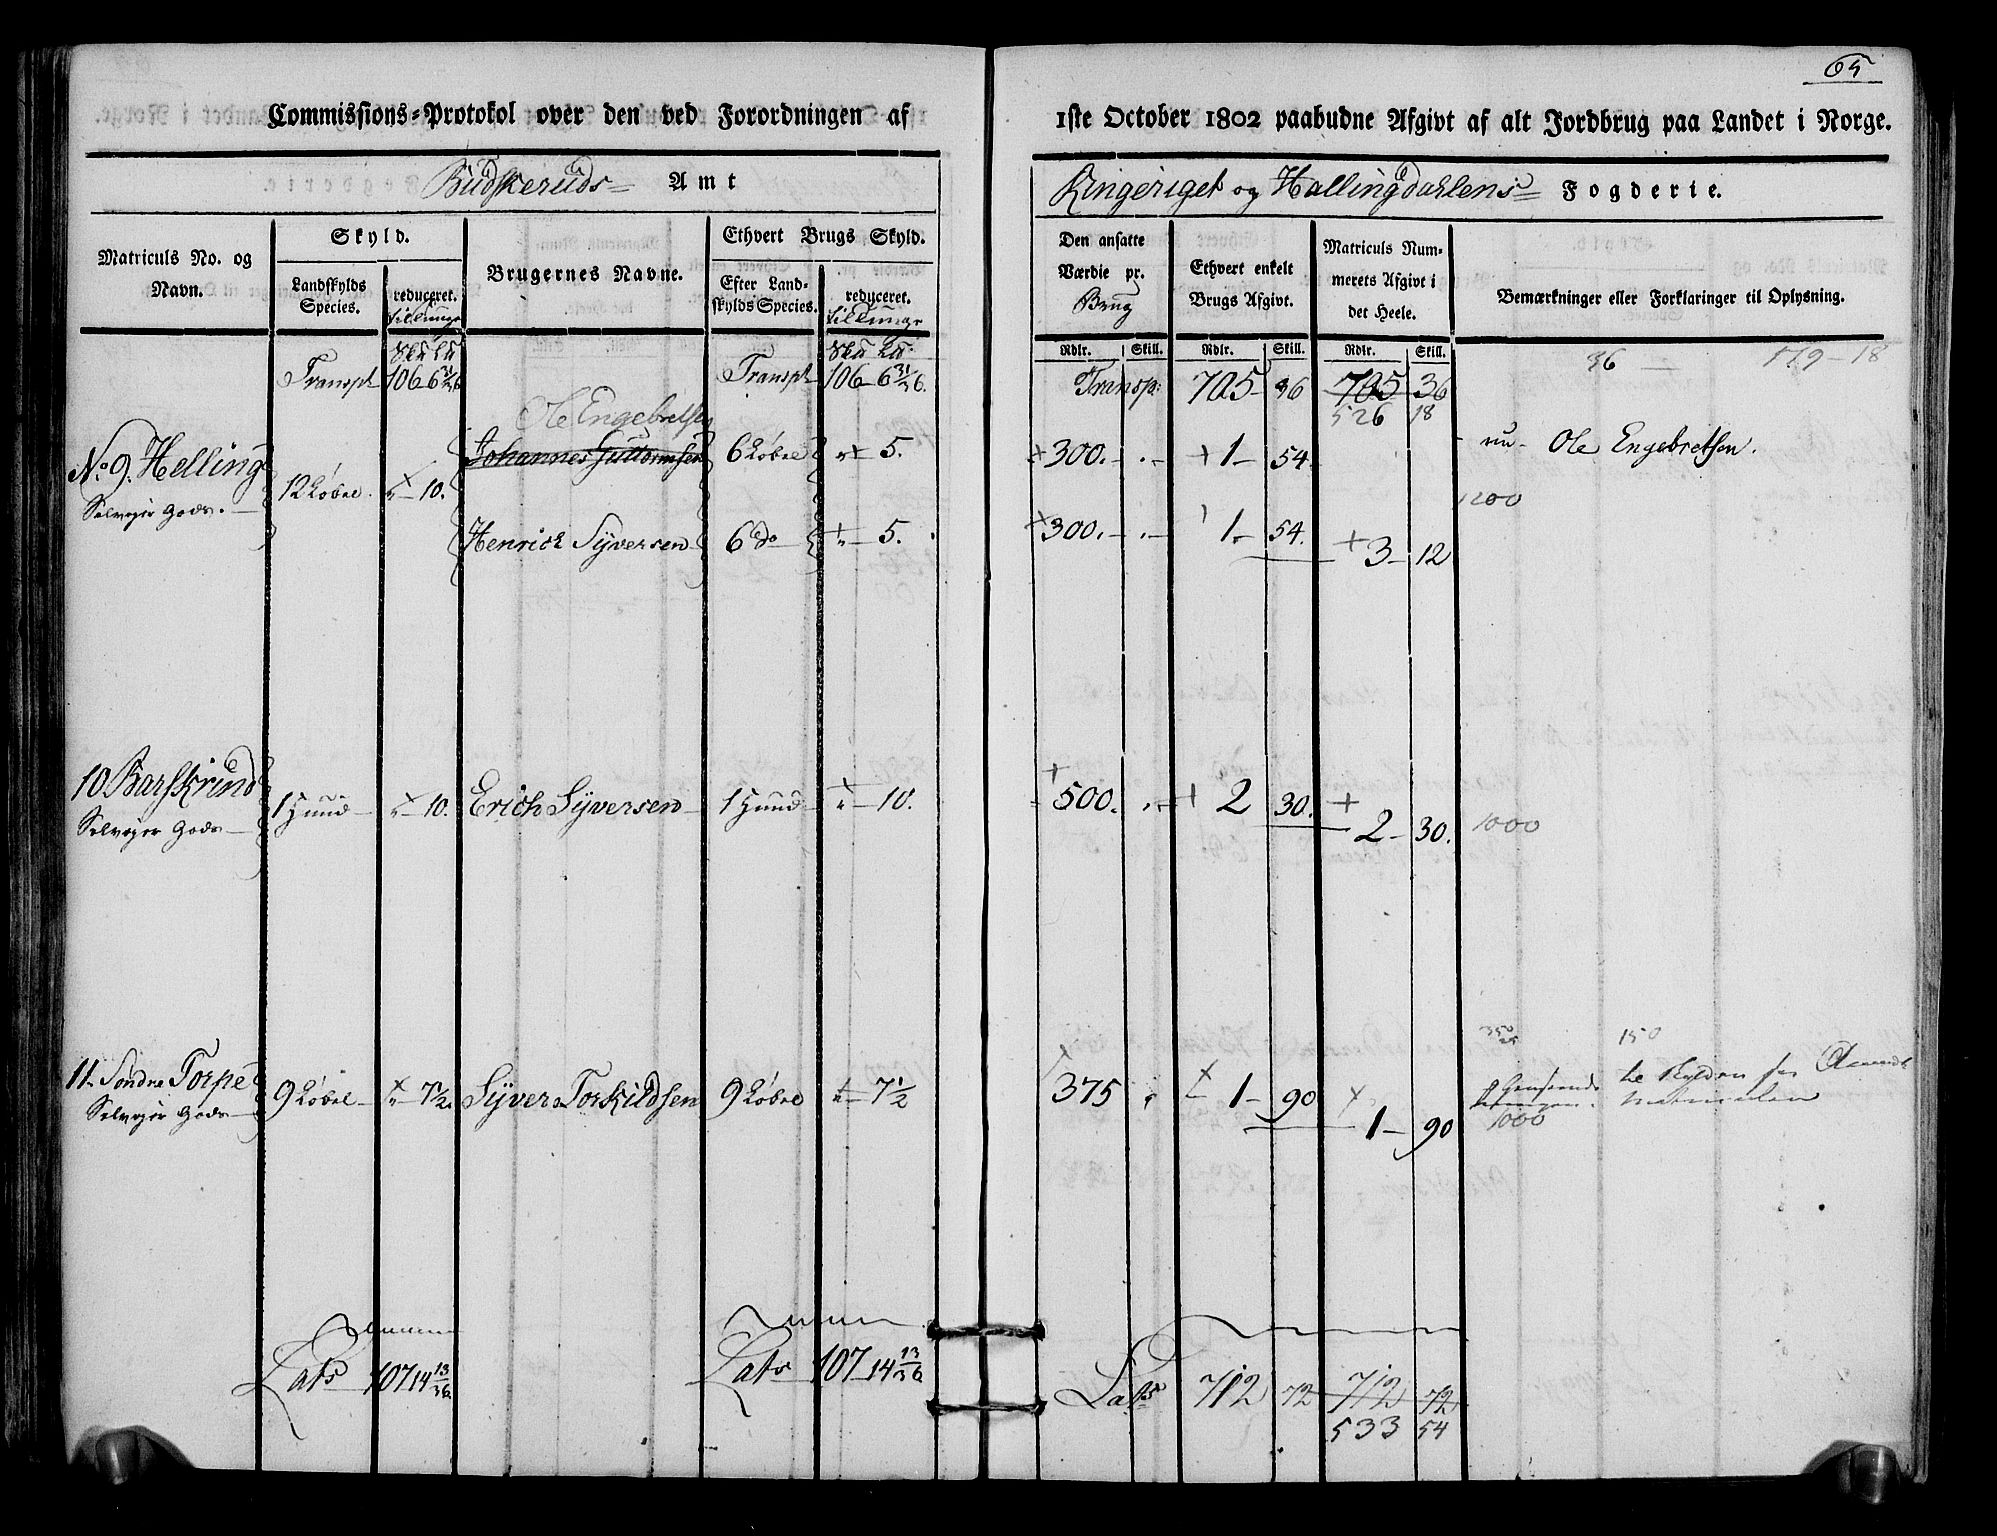 65
Commissions-Protokol over den ved Forordningen af
1ste October 1802 paabudne Afgivt af alt Jordbrug paa Landet i Norge.
Budskeruds Amt
Ringeriget og Hallingdahlens Fogderie.
Matriculs No. og Navn.
Skyld.
Landskylds Species.
reduceret.
tillunge
Brugernes Navne.
Ethvert Brugs Skyld.
Efter Landskylds Species.
reduceret.
tillunge
Den ansatte Værdie pr. Brug
Ethvert enkelt Brugs Afgivt.
Matriculs Nummerets Afgivt i det Heele.
Bemærkninger eller Forklaringer til Oplysning.
Rdlr. Skill. Rdlr. Skill. Rdlr. Skill.
Transpt 106 6 31/36 Transpt 106 6 31/36. Transp: 705 36 705 36
526 18
36 179-18
Ole Engebretsen
No 9. Helling 12 Løbe. 10. Johannes Guttormsen 6 Løbe 5. 300. 1 54. nu Ole Engebretsen.
Selveier Gods.
1200
Henrich Syversen 6 do 5. 300. 1 54. 3 12
10 Barskrind 1 Huud 10. Erich Syversen 1 Huud 10. 500. 2 30. 2 30. 1000
Selveier Gods
150
11 Søndre Torpe 9 Løbe 7 1/2. Syver Torkildsen 9 Løbe 7 1/2 375 1 90 1 90
Selveier Gods
1000
Lats 107 14 13/36 Lats 107 14 13/36 Lats 712 72 712 72
533 54